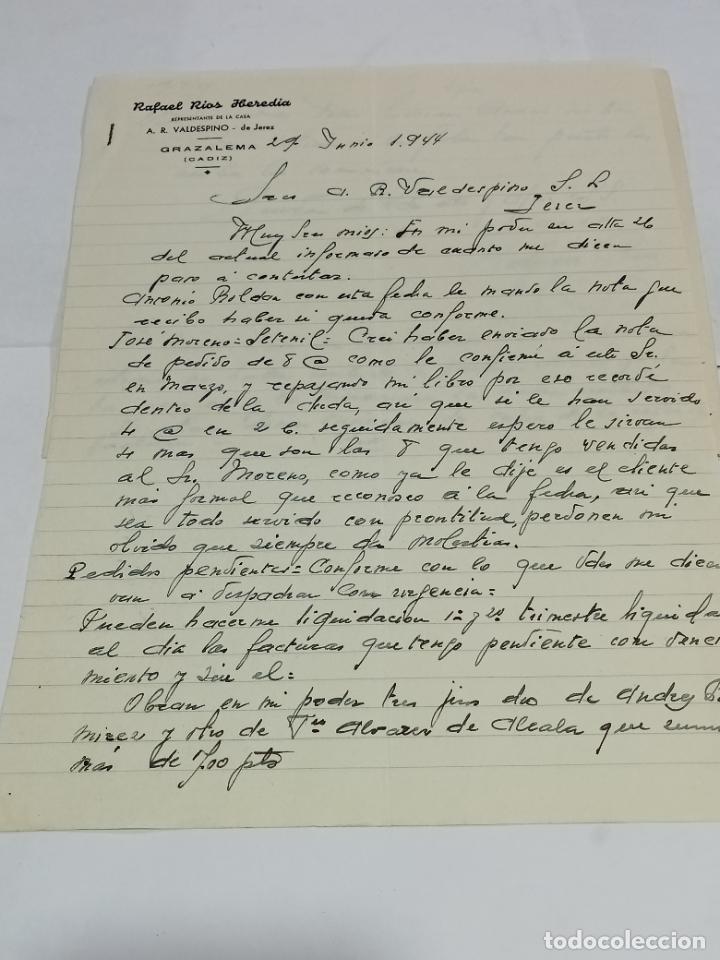 Rafael Rios Heredia
REPRESENTANTE DE LA CASA
A. R. VALDESPINO - de Jerez
GRAZALEMA
(CADIZ)
29 Junio 1.944
Sres A. R. Valdespino S. L
Jerez
Muy Sres mios: En mi poder su atta 26
del actual informado de cuanto me dicen
paso á contestar.
Antonio Roldan con esta fecha le mando la nota que
recibo haber si queda conforme.
José Moreno = Setenil = Crei haber enviado la nota
de pedido de 8 @ como le confirmé á este Sr.
en Marzo, y repasando mi libro por eso recordé
dentro de la cheda, asi que si le han servido
4 @ en 2 b. seguidamente espero le sirvan
4 mas que son las 8 que tengo vendidas
al Sr. Moreno, como ya le dije es el cliente
mas formal que reconosco á la fecha, asi que
sea todo servido con prontitud, perdonen mi
olvido que siempre da molestias.
Pedidos pendientes = Conforme con lo que Vdes me dicen
van á despachar con urgencia =
Pueden hacerme liquidacion 1º y 2º trimestre liquida
al dia las facturas que tengo pendiente con venci
miento y sin el:
Obran en mi poder tres jiros dos de Andres
mirez y otro de Alvarez de Alcala que suman
más de 700 pts
todocoleccion
todocoleccion.net